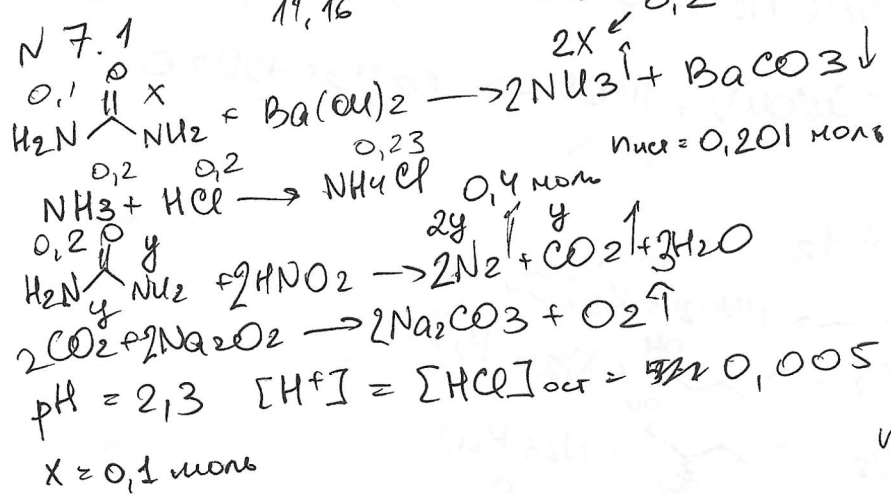 11,16
0,2
N 7.1
2X
0,1 O X
H2N NH2 + Ba(OH)2 → 2NH3↑ + BaCO3↓
nисх = 0,201 моль
0,2 0,2 0,23
NH3 + HCl → NH4Cl
0,4 моль
0,2 O y 2y y
H2N NH2 + 2HNO2 → 2N2↑ + CO2↑ + 3H2O
y
2CO2 + 2Na2O2 → 2Na2CO3 + O2↑
pH = 2,3 [H+] = [HCl]ост = 0,005
X = 0,1 моль